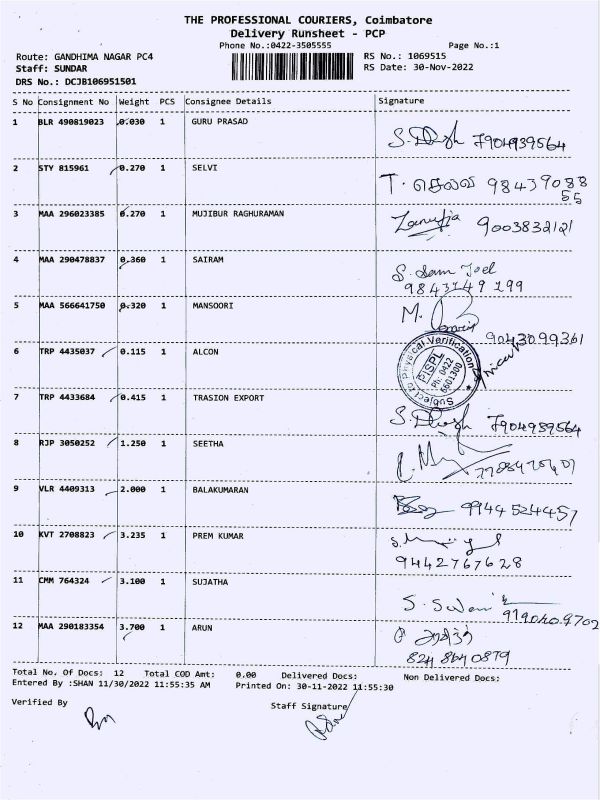 THE PROFESSIONAL COURIERS, Coimbatore
Delivery Runsheet - PCP
Phone No.:0422-3505555
Page No.:1
Route: GANDHIMA NAGAR PC4
RS No.: 1069515
Staff: SUNDAR
RS Date: 30-Nov-2022
DRS No.: DCJB106951501
S No Consignment No Weight PCS Consignee Details Signature
1 BLR 490819023 0.030 1 GURU PRASAD
7904939564
2 STY 815961 0.270 1 SELVI
T. செல்வி 98439088
55
3 MAA 296023385 0.270 1 MUJIBUR RAGHURAMAN
9003832121
4 MAA 290478837 0.360 1 SAIRAM
S. Sam Joel
9843149 199
5 MAA 566641750 0.320 1 MANSOORI
M.
9043099361
6 TRP 4435037 0.115 1 ALCON
Subject to Physical Verification
PISPL
Ph: 0422
6601300
7 TRP 4433684 0.415 1 TRASION EXPORT
7904939564
8 RJP 3050252 1.250 1 SEETHA
9 VLR 4409313 2.000 1 BALAKUMARAN
9944524457
10 KVT 2708823 3.235 1 PREM KUMAR
9442767628
11 CMM 764324 3.100 1 SUJATHA
12 MAA 290183354 3.700 1 ARUN
824 8640879
Total No. Of Docs: 12 Total COD Amt: 0.00 Delivered Docs: Non Delivered Docs:
Entered By :SHAN 11/30/2022 11:55:35 AM Printed On: 30-11-2022 11:55:30
Verified By
Staff Signature